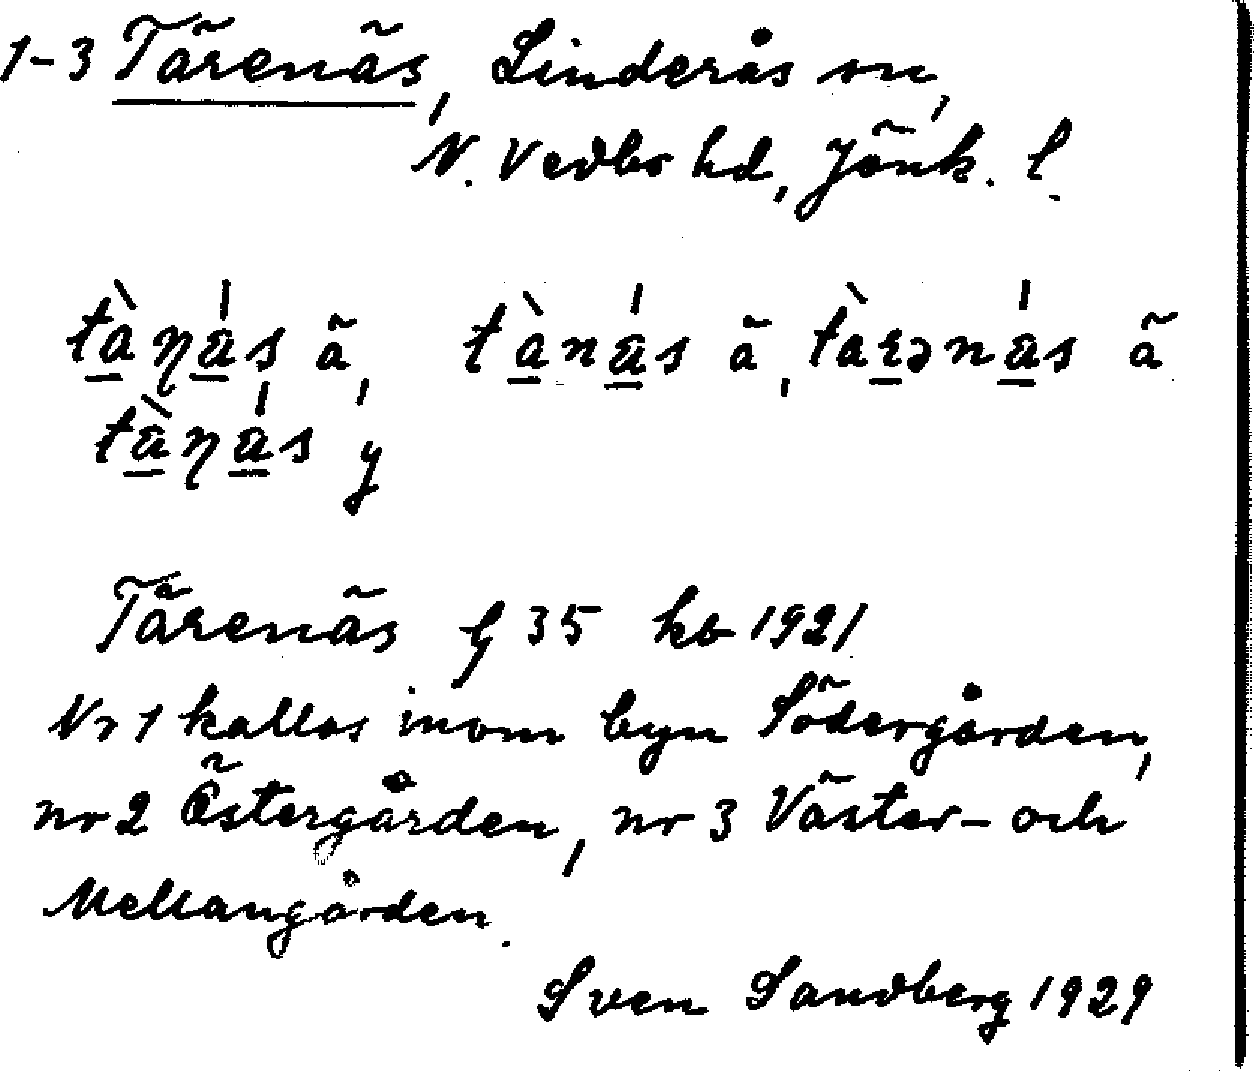 1-3 Tärenäs, Linderås sn,
N. Vedbo hd, Jönk. l.
tàṇás ä, tànás ä, tarənás ä
tàṇás y
Tärenäs G 35 kb 1921
Nr 1 kallas inom byn Södergården,
nr 2 Östergården, nr 3 Väster- och
Mellangården.
Sven Sandberg 1929